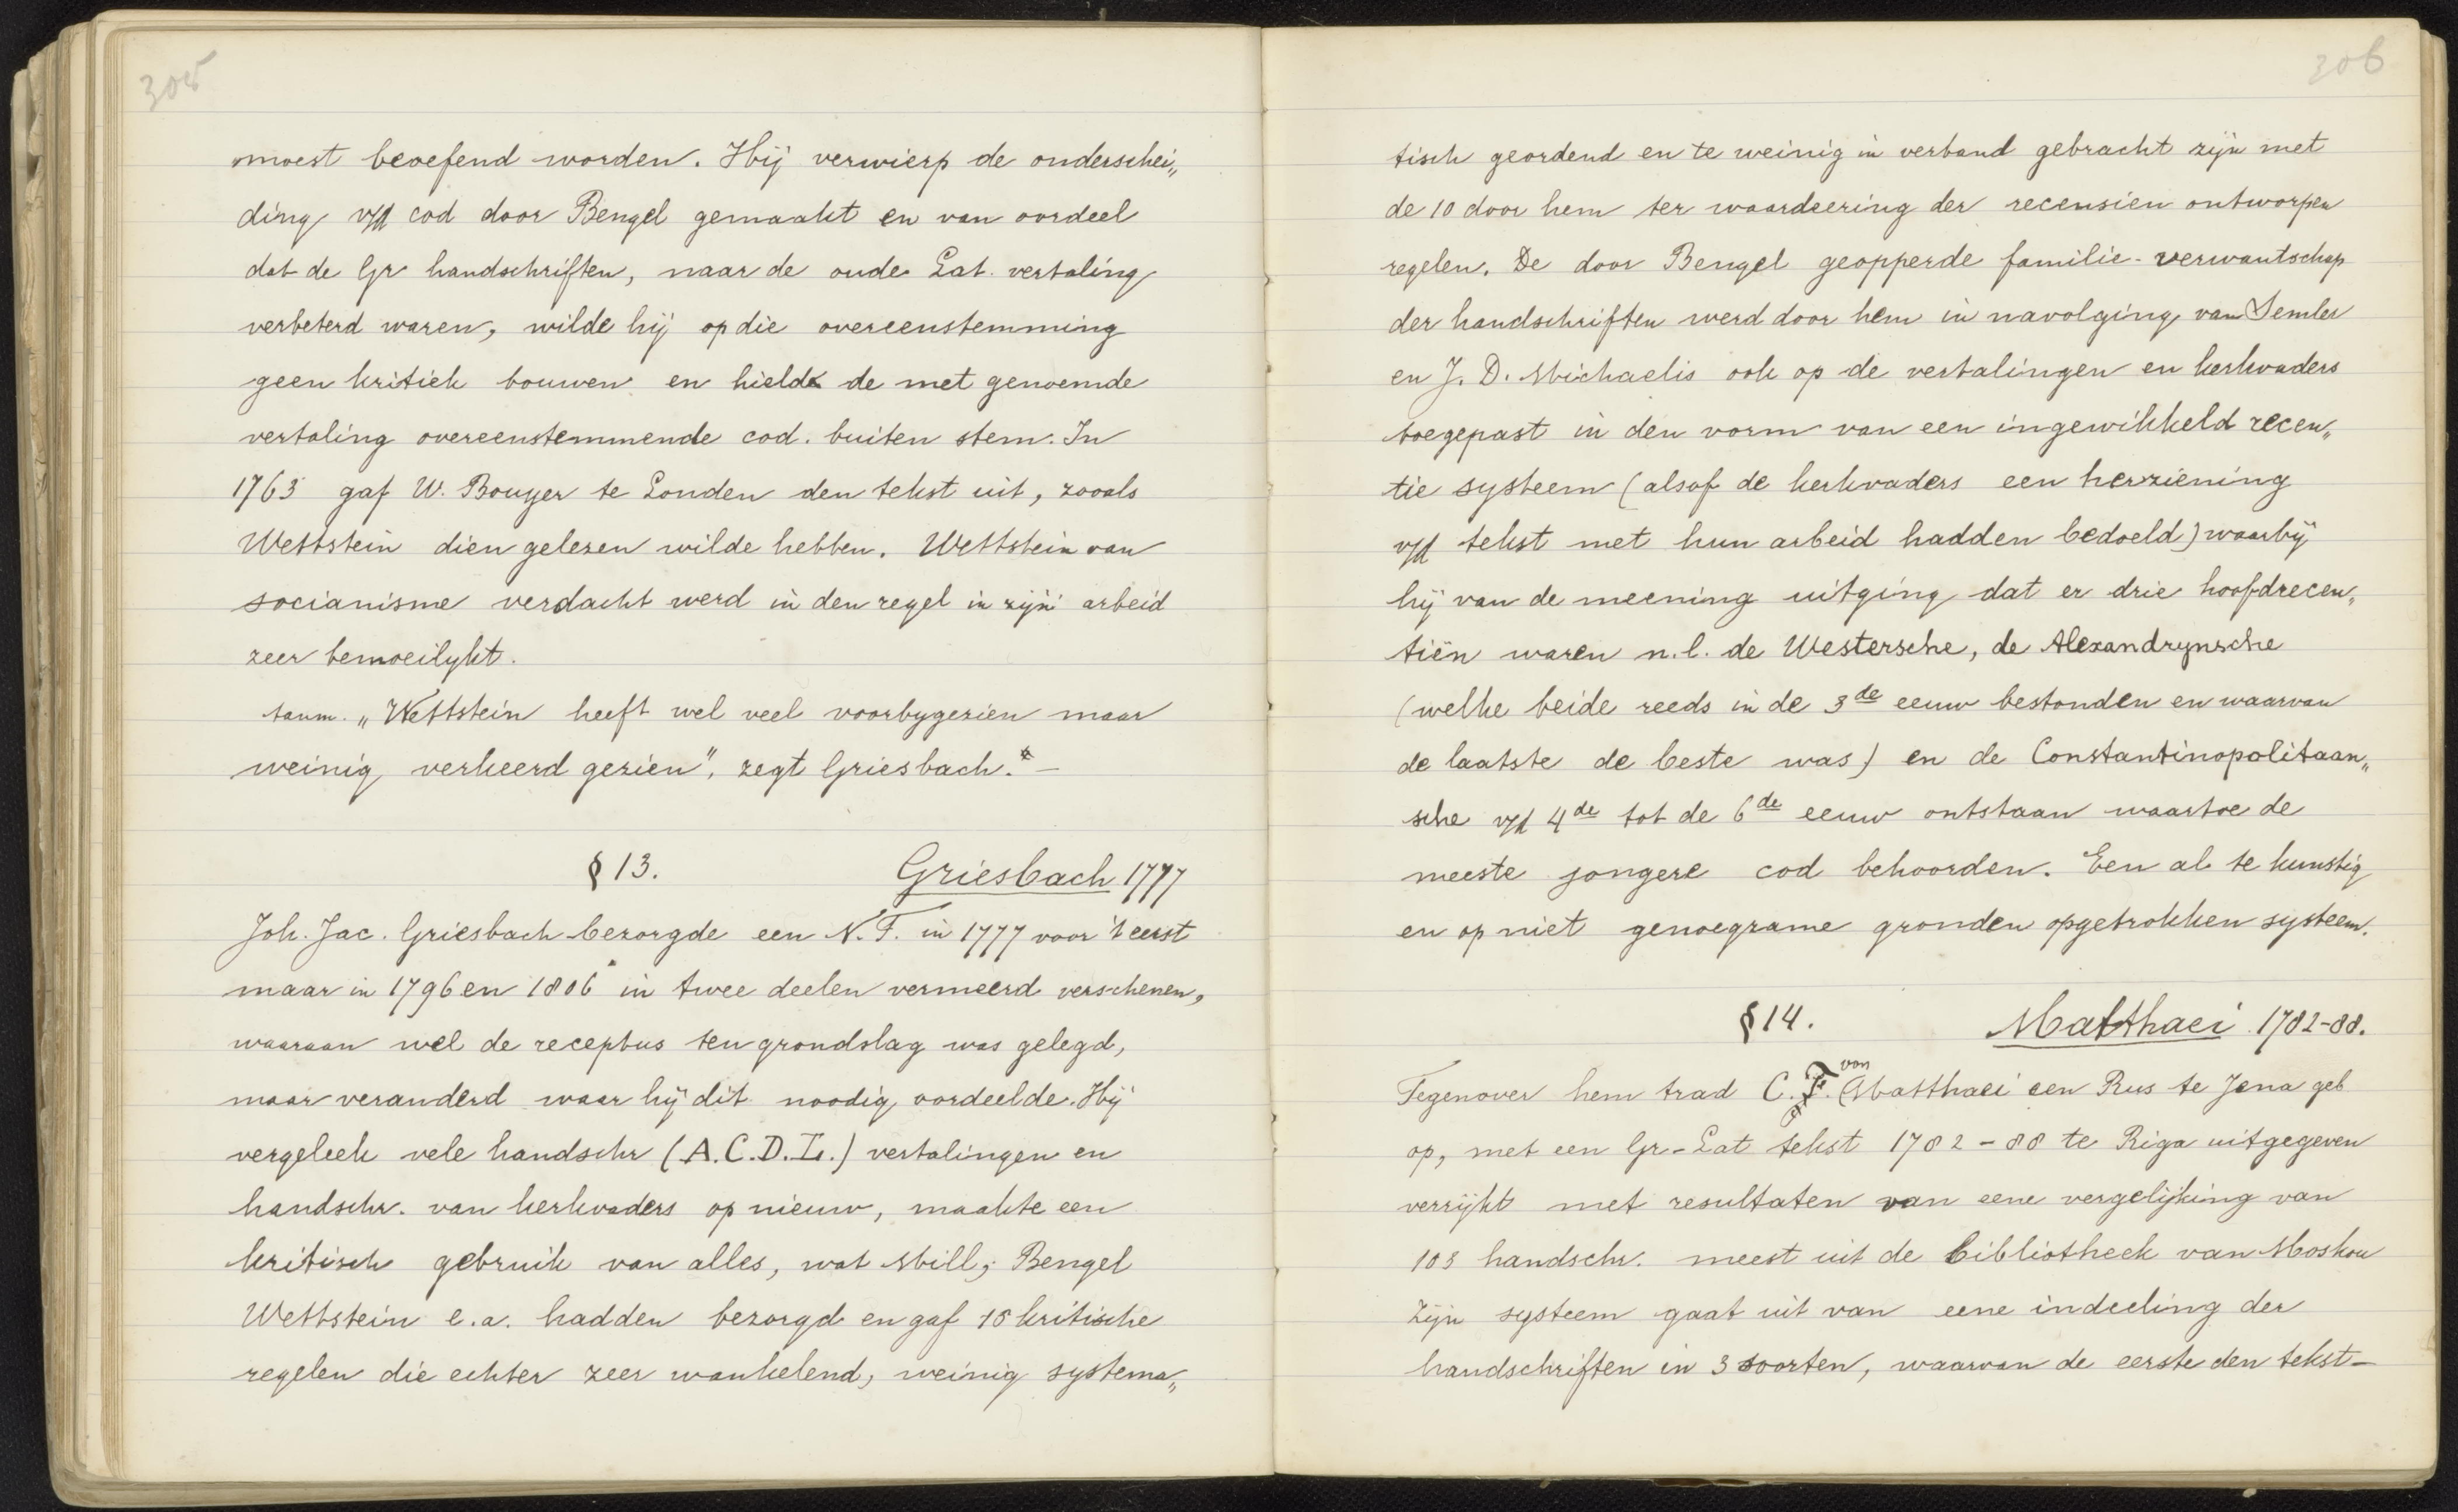 305
moest beoefend worden. Hij verwierp de onderschei„
ding v/d cod door Bengel gemaakt en van oordeel
dat de Gr handschriften, naar de oude Lat. vertaling
verbeterd waren, wilde hij op die overeenstemming
geen kritiek bouwen en hield de met genoemde
vertaling overeenstemmende cod. buiten stem. In
1763 gaf W. Bouyer te Londen den tekst uit, zooals
Wettstein dien gelezen wilde hebben. Wettstein van
socianisme verdacht werd in den regel in zijn arbeid
zeer bemoeilykt.
„Wettstein heeft wel veel voorbygezien maar
weinig verkeerd gezien", zegt Griesbach.* —
§ 13. Griesbach 1777
Joh. Jac. Griesbach bezorgde een N.T. in 1777 voor 't eerst
maar in 1796 en 1806 in twee deelen vermeerd verschenen,
waaraan wel de receptus ten grondslag was gelegd,
maar veranderd waar hij dit noodig oordeelde. Hij
vergeleek vele handschr (A.C.D.L.) vertalingen en
handschr. van kerkvaders op nieuw, maakte een
kritisch gebruik van alles, wat Mill, Bengel
Wettstein e.a. hadden bezorgd en gaf 10 kritische
regelen die echter zeer wankelend, weinig systema„
306
tisch geordend en te weinig in verband gebracht zijn met
de 10 door hem ter waardeering der recensien ontworpen
regelen. De door Bengel geopperde familie-verwantschap
der handschriften werd door hem in navolging van Semler
en J. D. Michaelis ook op de vertalingen en kerkvaders
toegepast in den vorm van een ingewikkeld recen„
tie systeem (alsof de kerkvaders een herziening
v/d tekst met hun arbeid hadden bedoeld) waarbij
hij van de meening uitging dat er drie hoofdrecen„
tiën waren n.l. de Westersche, de Alexandrynsche
(welke beide reeds in de 3de eeuw bestonden en waarvan
de laatste de beste was) en de Constantinopolitaan„
sche v/d 4de tot de 6de eeuw ontstaan waartoe de
meeste jongere cod behoorden. Een al te kunstig
en op niet genoegzame gronden opgetrokken systeem.
§ 14. Matthaei 1782-88.
Tegenover hem trad C. F. von Matthaei een Rus te Jena geb
op, met een Gr-Lat tekst 1782-88 te Riga uitgegeven
verrijkt met resultaten van eene vergelijking van
103 handschr. meest uit de bibliotheek van Moskou
Zijn systeem gaat uit van eene indeeling der
handschriften in 3 soorten, waarvan de eerste den tekst-